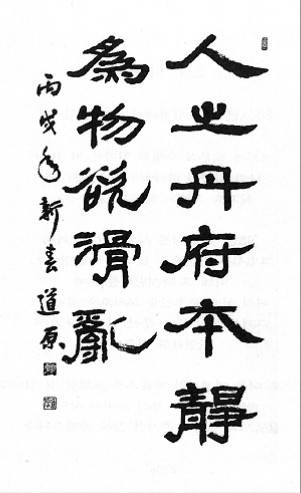 人之丹府本靜
為物欲滑亂
丙戌年新春道原